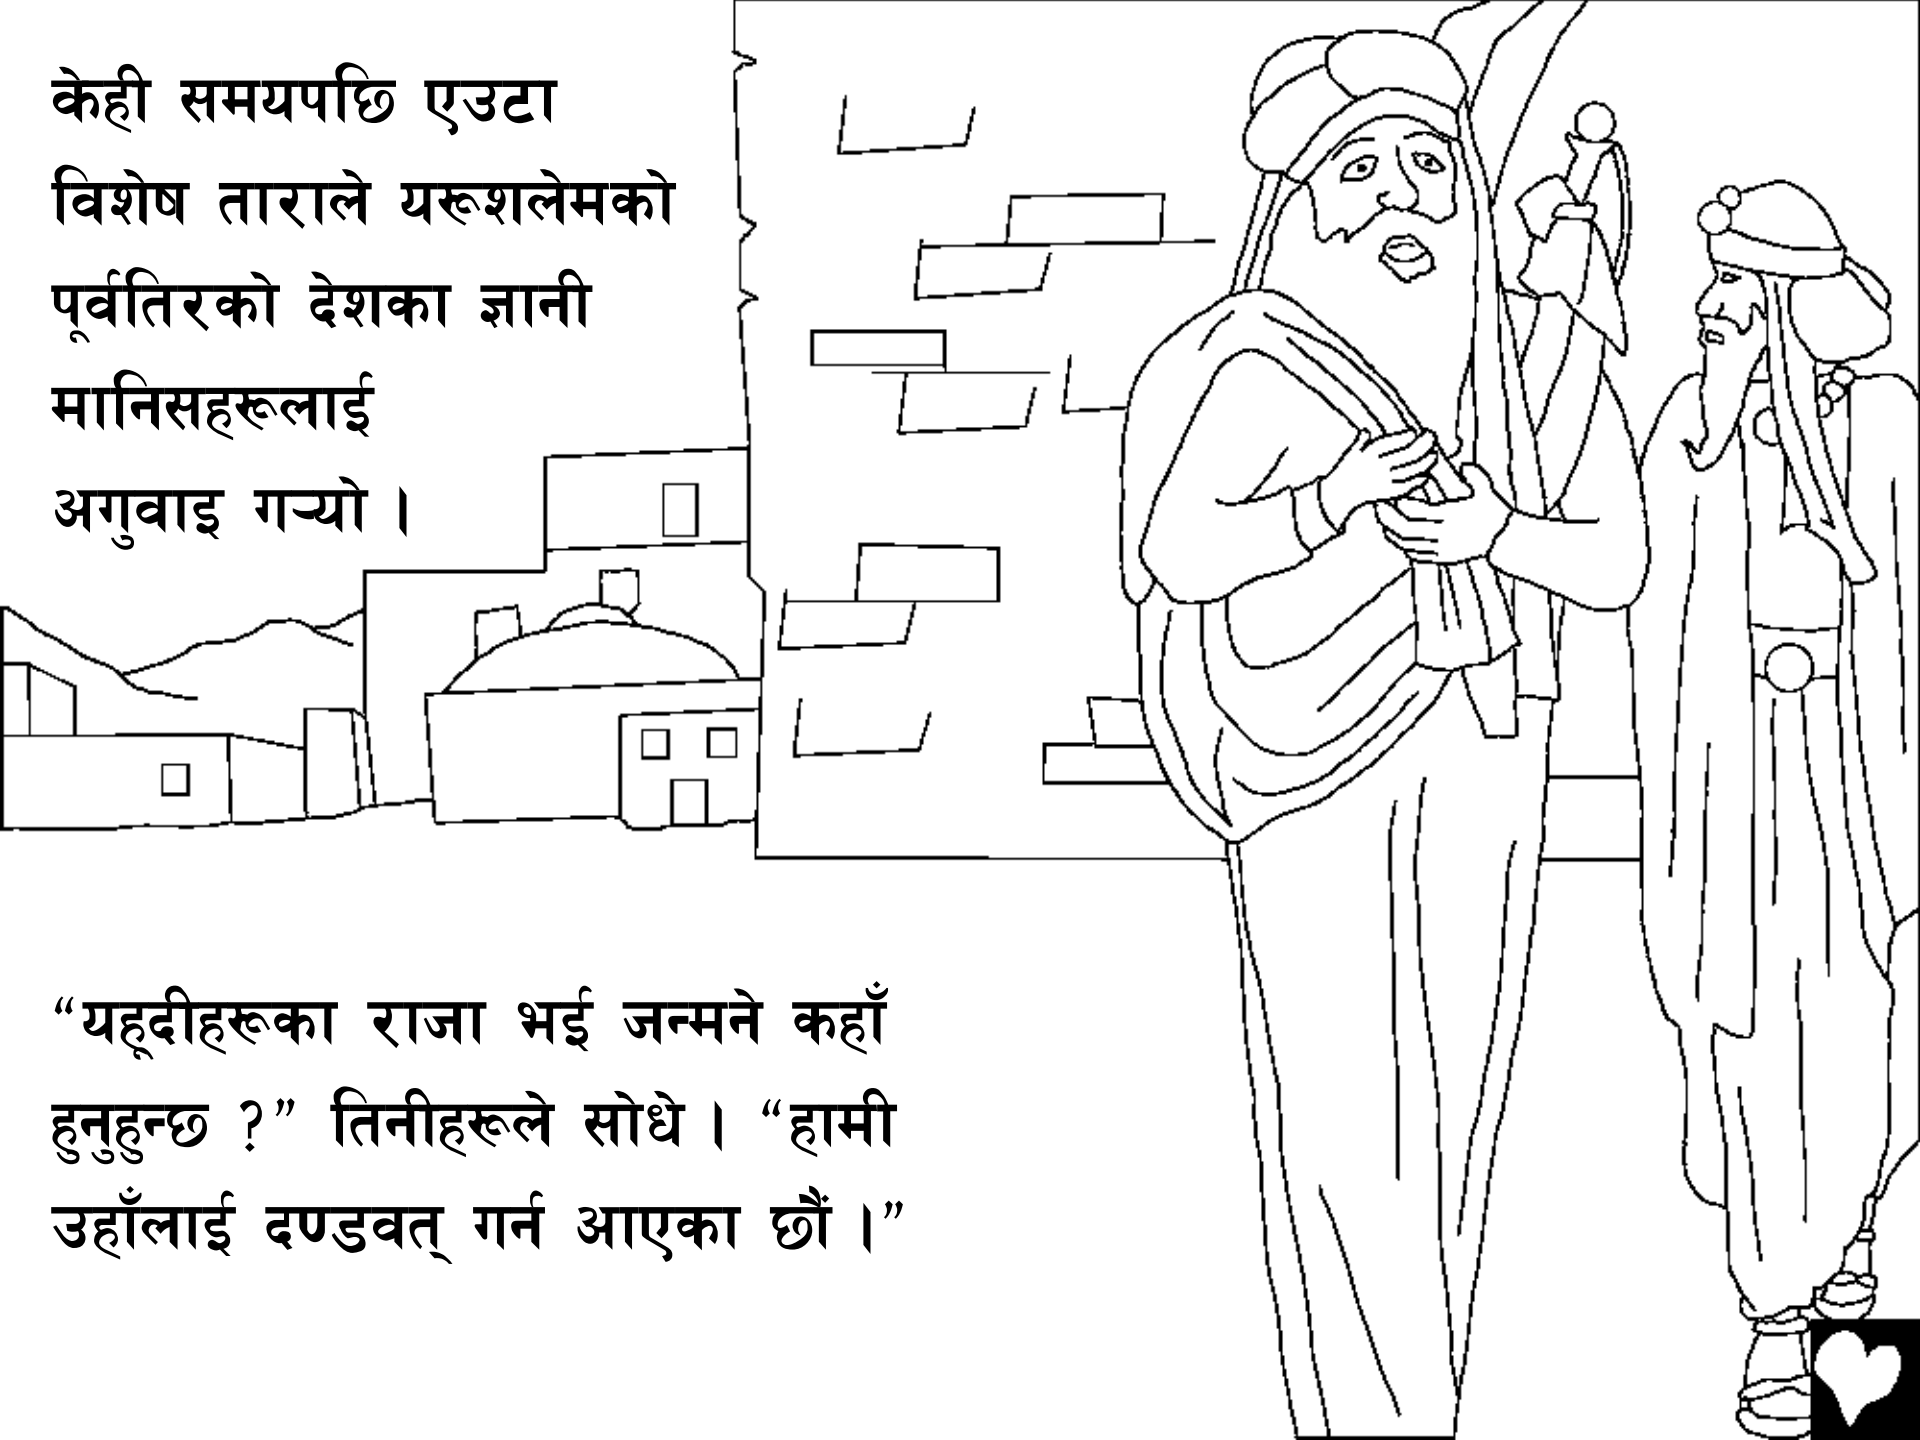 केही समयपछि एउटा
विशेष ताराले यरूशलेमको
पूर्वतिरको देशका ज्ञानी
मानिसहरूलाई
अगुवाइ गर्‍यो ।
“यहूदीहरूका राजा भई जन्मने कहाँ
हुनुहुन्छ ?” तिनीहरूले सोधे । “हामी
उहाँलाई दण्डवत् गर्न आएका छौं ।”